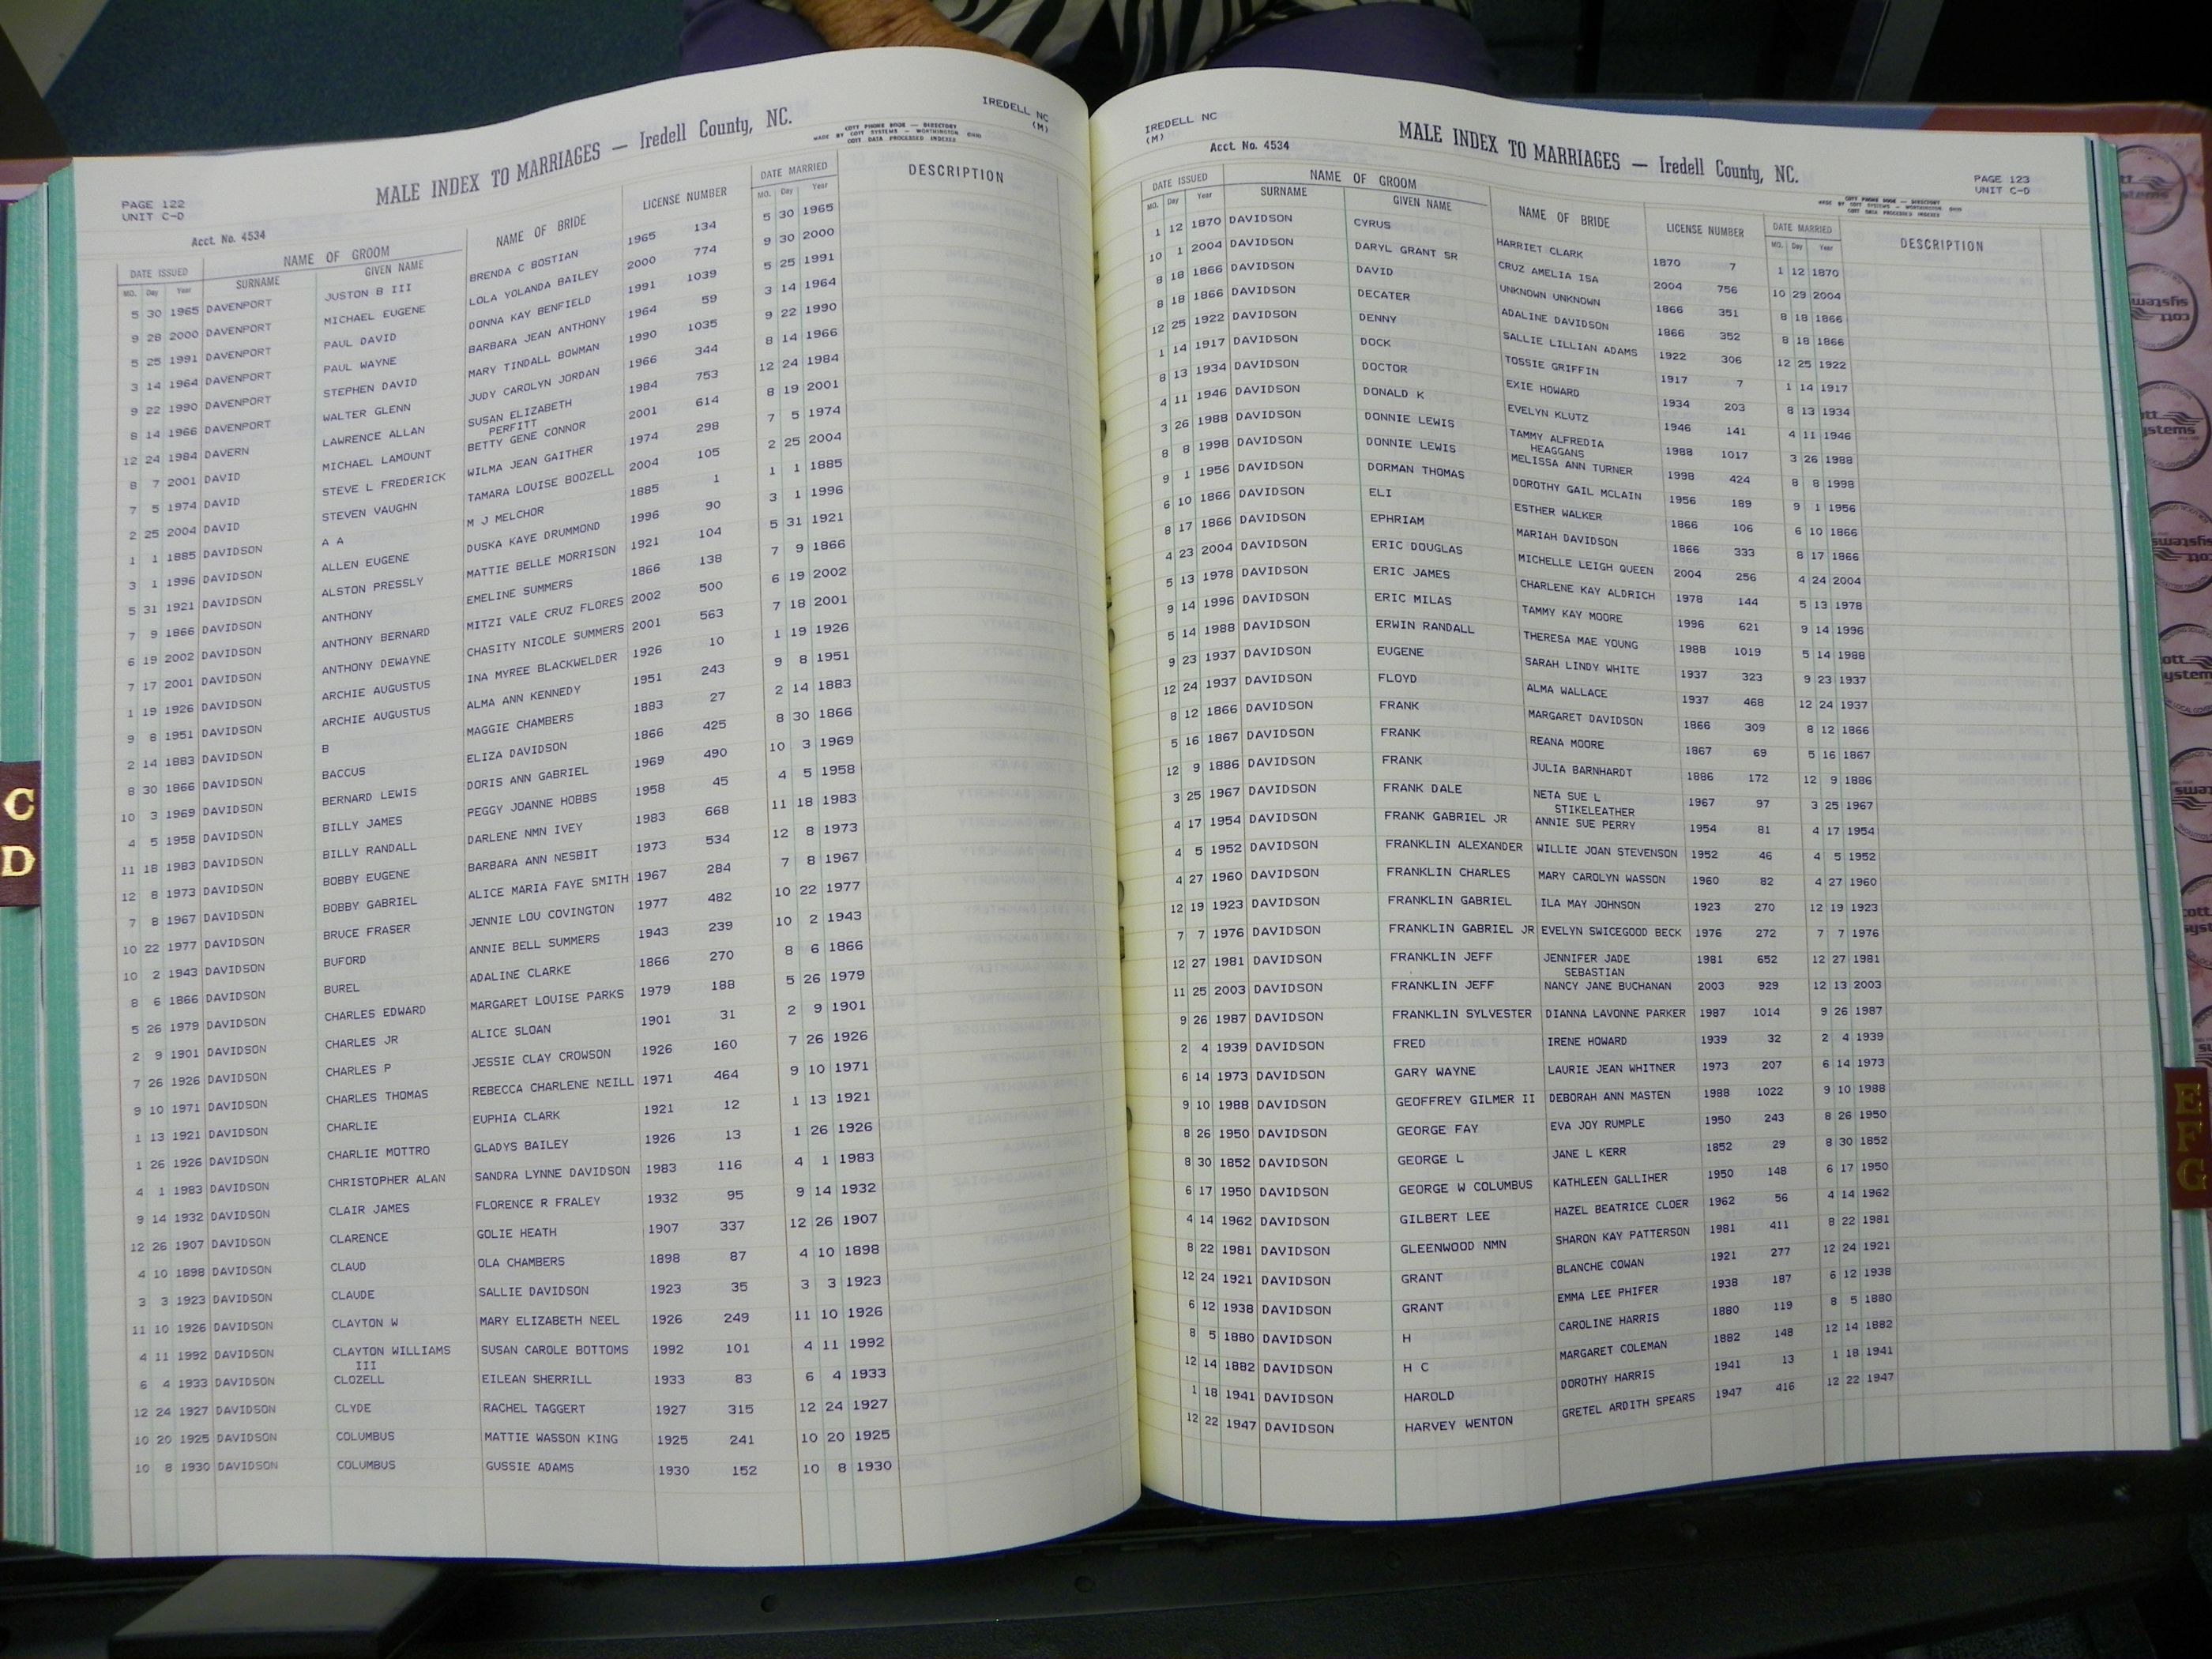 PAGE 122
UNIT C-D
MALE INDEX TO MARRIAGES — Iredell County, NC.
IREDELL NC
(M)
COTT PHONE BOOK — DIRECTORY
MADE BY COTT SYSTEMS — WORTHINGTON OHIO
COTT DATA PROCESSED INDEXES
Acct. No. 4534
DATE ISSUED NAME OF GROOM NAME OF BRIDE LICENSE NUMBER DATE MARRIED DESCRIPTION
MO. Day Year SURNAME GIVEN NAME MO. Day Year
5 30 1965 DAVENPORT JUSTON B III BRENDA C BOSTIAN 1965 134 5 30 1965
9 28 2000 DAVENPORT MICHAEL EUGENE LOLA YOLANDA BAILEY 2000 774 9 30 2000
5 25 1991 DAVENPORT PAUL DAVID DONNA KAY BENFIELD 1991 1039 5 25 1991
3 14 1964 DAVENPORT PAUL WAYNE BARBARA JEAN ANTHONY 1964 59 3 14 1964
9 22 1990 DAVENPORT STEPHEN DAVID MARY TINDALL BOWMAN 1990 1035 9 22 1990
8 14 1966 DAVENPORT WALTER GLENN JUDY CAROLYN JORDAN 1966 344 8 14 1966
12 24 1984 DAVERN LAWRENCE ALLAN SUSAN ELIZABETH 1984 753 12 24 1984
PERFITT
8 7 2001 DAVID MICHAEL LAMOUNT BETTY GENE CONNOR 2001 614 8 19 2001
7 5 1974 DAVID STEVE L FREDERICK WILMA JEAN GAITHER 1974 298 7 5 1974
2 25 2004 DAVID STEVEN VAUGHN TAMARA LOUISE BOOZELL 2004 105 2 25 2004
1 1 1885 DAVIDSON A A M J MELCHOR 1885 1 1 1 1885
3 1 1996 DAVIDSON ALLEN EUGENE DUSKA KAYE DRUMMOND 1996 90 3 1 1996
5 31 1921 DAVIDSON ALSTON PRESSLY MATTIE BELLE MORRISON 1921 104 5 31 1921
7 9 1866 DAVIDSON ANTHONY EMELINE SUMMERS 1866 138 7 9 1866
6 19 2002 DAVIDSON ANTHONY BERNARD MITZI VALE CRUZ FLORES 2002 500 6 19 2002
7 17 2001 DAVIDSON ANTHONY DEWAYNE CHASITY NICOLE SUMMERS 2001 563 7 18 2001
1 19 1926 DAVIDSON ARCHIE AUGUSTUS INA MYREE BLACKWELDER 1926 10 1 19 1926
9 8 1951 DAVIDSON ARCHIE AUGUSTUS ALMA ANN KENNEDY 1951 243 9 8 1951
2 14 1883 DAVIDSON B MAGGIE CHAMBERS 1883 27 2 14 1883
8 30 1866 DAVIDSON BACCUS ELIZA DAVIDSON 1866 425 8 30 1866
10 3 1969 DAVIDSON BERNARD LEWIS DORIS ANN GABRIEL 1969 490 10 3 1969
4 5 1958 DAVIDSON BILLY JAMES PEGGY JOANNE HOBBS 1958 45 4 5 1958
11 18 1983 DAVIDSON BILLY RANDALL DARLENE NMN IVEY 1983 668 11 18 1983
12 8 1973 DAVIDSON BOBBY EUGENE BARBARA ANN NESBIT 1973 534 12 8 1973
7 8 1967 DAVIDSON BOBBY GABRIEL ALICE MARIA FAYE SMITH 1967 284 7 8 1967
10 22 1977 DAVIDSON BRUCE FRASER JENNIE LOU COVINGTON 1977 482 10 22 1977
10 2 1943 DAVIDSON BUFORD ANNIE BELL SUMMERS 1943 239 10 2 1943
8 6 1866 DAVIDSON BUREL ADALINE CLARKE 1866 270 8 6 1866
5 26 1979 DAVIDSON CHARLES EDWARD MARGARET LOUISE PARKS 1979 188 5 26 1979
2 9 1901 DAVIDSON CHARLES JR ALICE SLOAN 1901 31 2 9 1901
7 26 1926 DAVIDSON CHARLES P JESSIE CLAY CROWSON 1926 160 7 26 1926
9 10 1971 DAVIDSON CHARLES THOMAS REBECCA CHARLENE NEILL 1971 464 9 10 1971
1 13 1921 DAVIDSON CHARLIE EUPHIA CLARK 1921 12 1 13 1921
1 26 1926 DAVIDSON CHARLIE MOTTRO GLADYS BAILEY 1926 13 1 26 1926
4 1 1983 DAVIDSON CHRISTOPHER ALAN SANDRA LYNNE DAVIDSON 1983 116 4 1 1983
9 14 1932 DAVIDSON CLAIR JAMES FLORENCE R FRALEY 1932 95 9 14 1932
12 26 1907 DAVIDSON CLARENCE GOLIE HEATH 1907 337 12 26 1907
4 10 1898 DAVIDSON CLAUD OLA CHAMBERS 1898 87 4 10 1898
3 3 1923 DAVIDSON CLAUDE SALLIE DAVIDSON 1923 35 3 3 1923
11 10 1926 DAVIDSON CLAYTON W MARY ELIZABETH NEEL 1926 249 11 10 1926
4 11 1992 DAVIDSON CLAYTON WILLIAMS SUSAN CAROLE BOTTOMS 1992 101 4 11 1992
III
6 4 1933 DAVIDSON CLOZELL EILEAN SHERRILL 1933 83 6 4 1933
12 24 1927 DAVIDSON CLYDE RACHEL TAGGERT 1927 315 12 24 1927
10 20 1925 DAVIDSON COLUMBUS MATTIE WASSON KING 1925 241 10 20 1925
10 8 1930 DAVIDSON COLUMBUS GUSSIE ADAMS 1930 152 10 8 1930
C
D
IREDELL NC
(M)
Acct. No. 4534
MALE INDEX TO MARRIAGES — Iredell County, NC.
PAGE 123
UNIT C-D
COTT PHONE BOOK — DIRECTORY
MADE BY COTT SYSTEMS — WORTHINGTON OHIO
COTT DATA PROCESSED INDEXES
DATE ISSUED NAME OF GROOM NAME OF BRIDE LICENSE NUMBER DATE MARRIED DESCRIPTION
MO. Day Year SURNAME GIVEN NAME MO. Day Year
1 12 1870 DAVIDSON CYRUS HARRIET CLARK 1870 7 1 12 1870
10 1 2004 DAVIDSON DARYL GRANT SR CRUZ AMELIA ISA 2004 756 10 29 2004
8 18 1866 DAVIDSON DAVID UNKNOWN UNKNOWN 1866 351 8 18 1866
8 18 1866 DAVIDSON DECATER ADALINE DAVIDSON 1866 352 8 18 1866
12 25 1922 DAVIDSON DENNY SALLIE LILLIAN ADAMS 1922 306 12 25 1922
1 14 1917 DAVIDSON DOCK TOSSIE GRIFFIN 1917 7 1 14 1917
8 13 1934 DAVIDSON DOCTOR EXIE HOWARD 1934 203 8 13 1934
4 11 1946 DAVIDSON DONALD K EVELYN KLUTZ 1946 141 4 11 1946
3 26 1988 DAVIDSON DONNIE LEWIS TAMMY ALFREDIA 1988 1017 3 26 1988
HEAGGANS
8 8 1998 DAVIDSON DONNIE LEWIS MELISSA ANN TURNER 1998 424 8 8 1998
9 1 1956 DAVIDSON DORMAN THOMAS DOROTHY GAIL MCLAIN 1956 189 9 1 1956
6 10 1866 DAVIDSON ELI ESTHER WALKER 1866 106 6 10 1866
8 17 1866 DAVIDSON EPHRIAM MARIAH DAVIDSON 1866 333 8 17 1866
4 23 2004 DAVIDSON ERIC DOUGLAS MICHELLE LEIGH QUEEN 2004 256 4 24 2004
5 13 1978 DAVIDSON ERIC JAMES CHARLENE KAY ALDRICH 1978 144 5 13 1978
9 14 1996 DAVIDSON ERIC MILAS TAMMY KAY MOORE 1996 621 9 14 1996
5 14 1988 DAVIDSON ERWIN RANDALL THERESA MAE YOUNG 1988 1019 5 14 1988
9 23 1937 DAVIDSON EUGENE SARAH LINDY WHITE 1937 323 9 23 1937
12 24 1937 DAVIDSON FLOYD ALMA WALLACE 1937 468 12 24 1937
8 12 1866 DAVIDSON FRANK MARGARET DAVIDSON 1866 309 8 12 1866
5 16 1867 DAVIDSON FRANK REANA MOORE 1867 69 5 16 1867
12 9 1886 DAVIDSON FRANK JULIA BARNHARDT 1886 172 12 9 1886
3 25 1967 DAVIDSON FRANK DALE NETA SUE L 1967 97 3 25 1967
STIKELEATHER
4 17 1954 DAVIDSON FRANK GABRIEL JR ANNIE SUE PERRY 1954 81 4 17 1954
4 5 1952 DAVIDSON FRANKLIN ALEXANDER WILLIE JOAN STEVENSON 1952 46 4 5 1952
4 27 1960 DAVIDSON FRANKLIN CHARLES MARY CAROLYN WASSON 1960 82 4 27 1960
12 19 1923 DAVIDSON FRANKLIN GABRIEL ILA MAY JOHNSON 1923 270 12 19 1923
7 7 1976 DAVIDSON FRANKLIN GABRIEL JR EVELYN SWICEGOOD BECK 1976 272 7 7 1976
12 27 1981 DAVIDSON FRANKLIN JEFF JENNIFER JADE 1981 652 12 27 1981
SEBASTIAN
11 25 2003 DAVIDSON FRANKLIN JEFF NANCY JANE BUCHANAN 2003 929 12 13 2003
9 26 1987 DAVIDSON FRANKLIN SYLVESTER DIANNA LAVONNE PARKER 1987 1014 9 26 1987
2 4 1939 DAVIDSON FRED IRENE HOWARD 1939 32 2 4 1939
6 14 1973 DAVIDSON GARY WAYNE LAURIE JEAN WHITNER 1973 207 6 14 1973
9 10 1988 DAVIDSON GEOFFREY GILMER II DEBORAH ANN MASTEN 1988 1022 9 10 1988
8 26 1950 DAVIDSON GEORGE FAY EVA JOY RUMPLE 1950 243 8 26 1950
8 30 1852 DAVIDSON GEORGE L JANE L KERR 1852 29 8 30 1852
6 17 1950 DAVIDSON GEORGE W COLUMBUS KATHLEEN GALLIHER 1950 148 6 17 1950
4 14 1962 DAVIDSON GILBERT LEE HAZEL BEATRICE CLOER 1962 56 4 14 1962
8 22 1981 DAVIDSON GLEENWOOD NMN SHARON KAY PATTERSON 1981 411 8 22 1981
12 24 1921 DAVIDSON GRANT BLANCHE COWAN 1921 277 12 24 1921
6 12 1938 DAVIDSON GRANT EMMA LEE PHIFER 1938 187 6 12 1938
8 5 1880 DAVIDSON H CAROLINE HARRIS 1880 119 8 5 1880
12 14 1882 DAVIDSON H C MARGARET COLEMAN 1882 148 12 14 1882
1 18 1941 DAVIDSON HAROLD DOROTHY HARRIS 1941 13 1 18 1941
12 22 1947 DAVIDSON HARVEY WENTON GRETEL ARDITH SPEARS 1947 416 12 22 1947
E
F
G